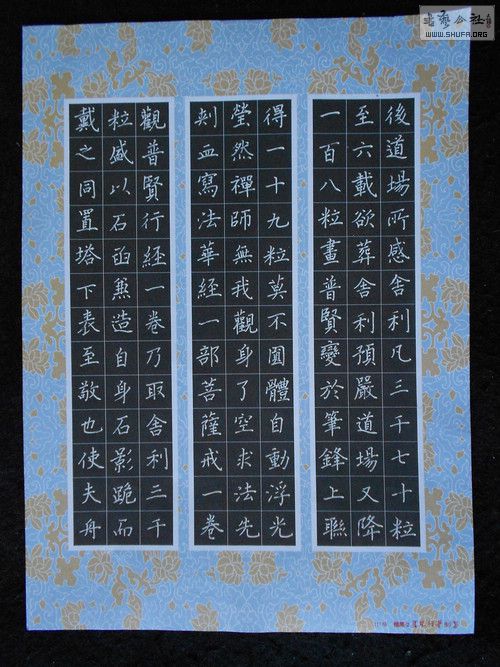 後道場所感舍利凡三千七十粒
至六載欲葬舍利預嚴道場又降
一百八粒畫普賢變於筆鋒上聯
得一十九粒莫不圓體自動浮光
瑩然禪師無我觀身了空求法先
刺血寫法華經一部菩薩戒一卷
觀普賢行經一卷乃取舍利三千
粒盛以石函兼造自身石影跪而
戴之同置塔下表至敬也使夫舟
書藝公社
WWW.SHUFA.ORG